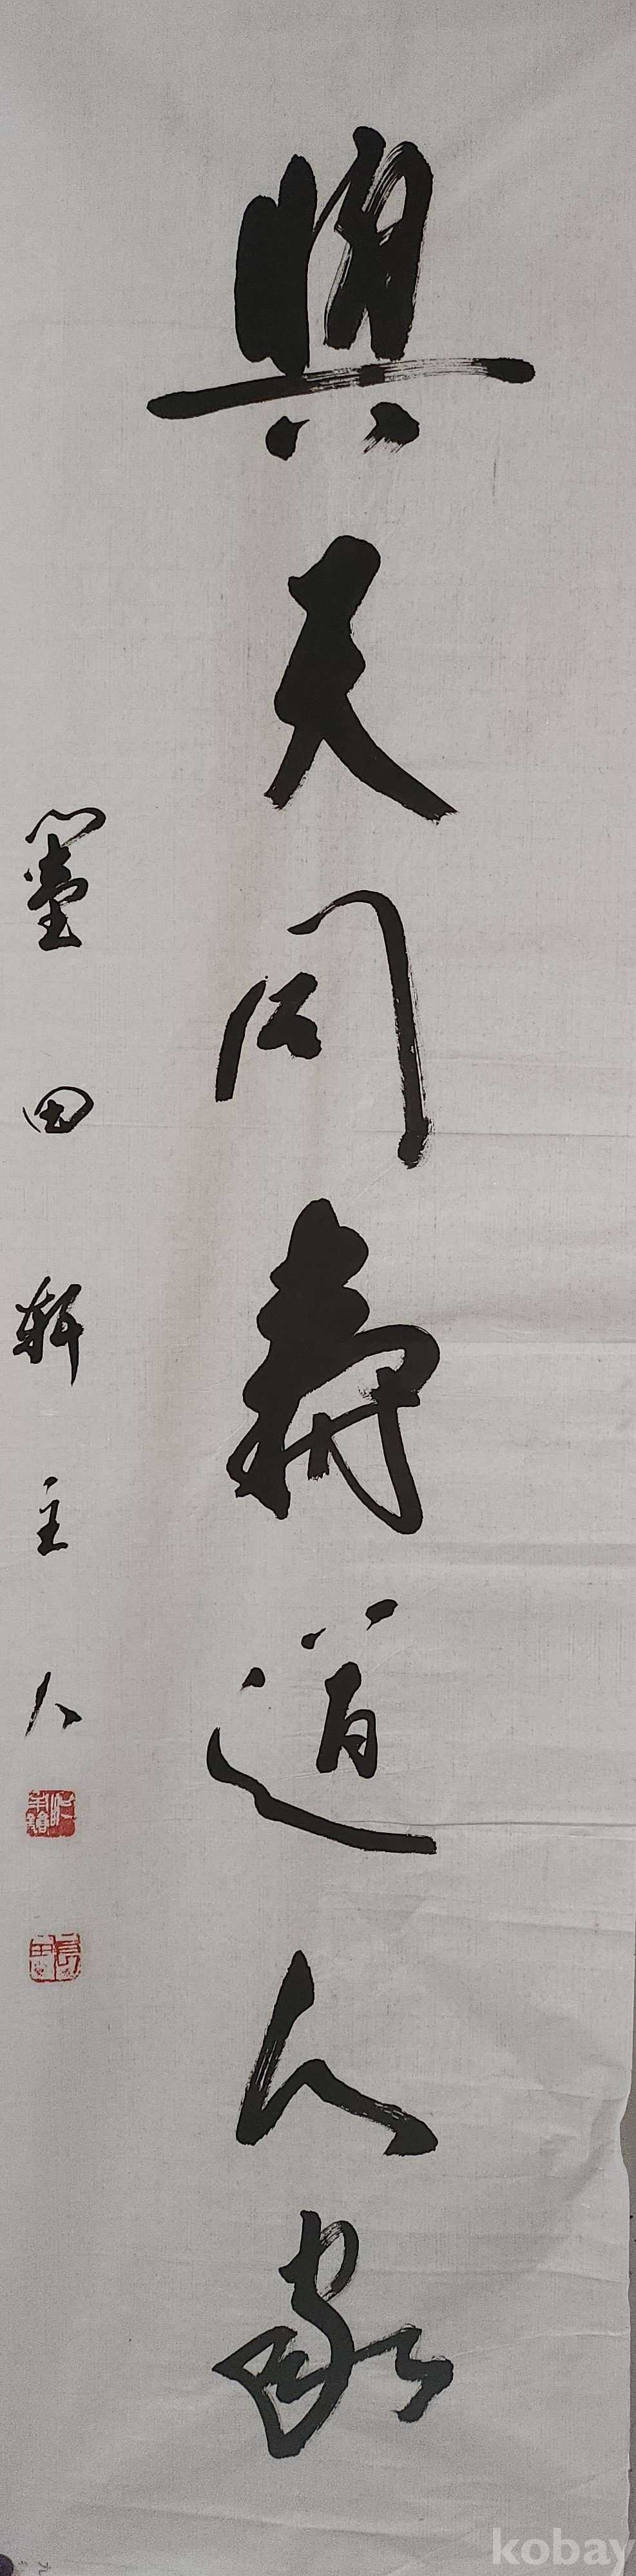 與天同壽道人家
田軒主人
kobay